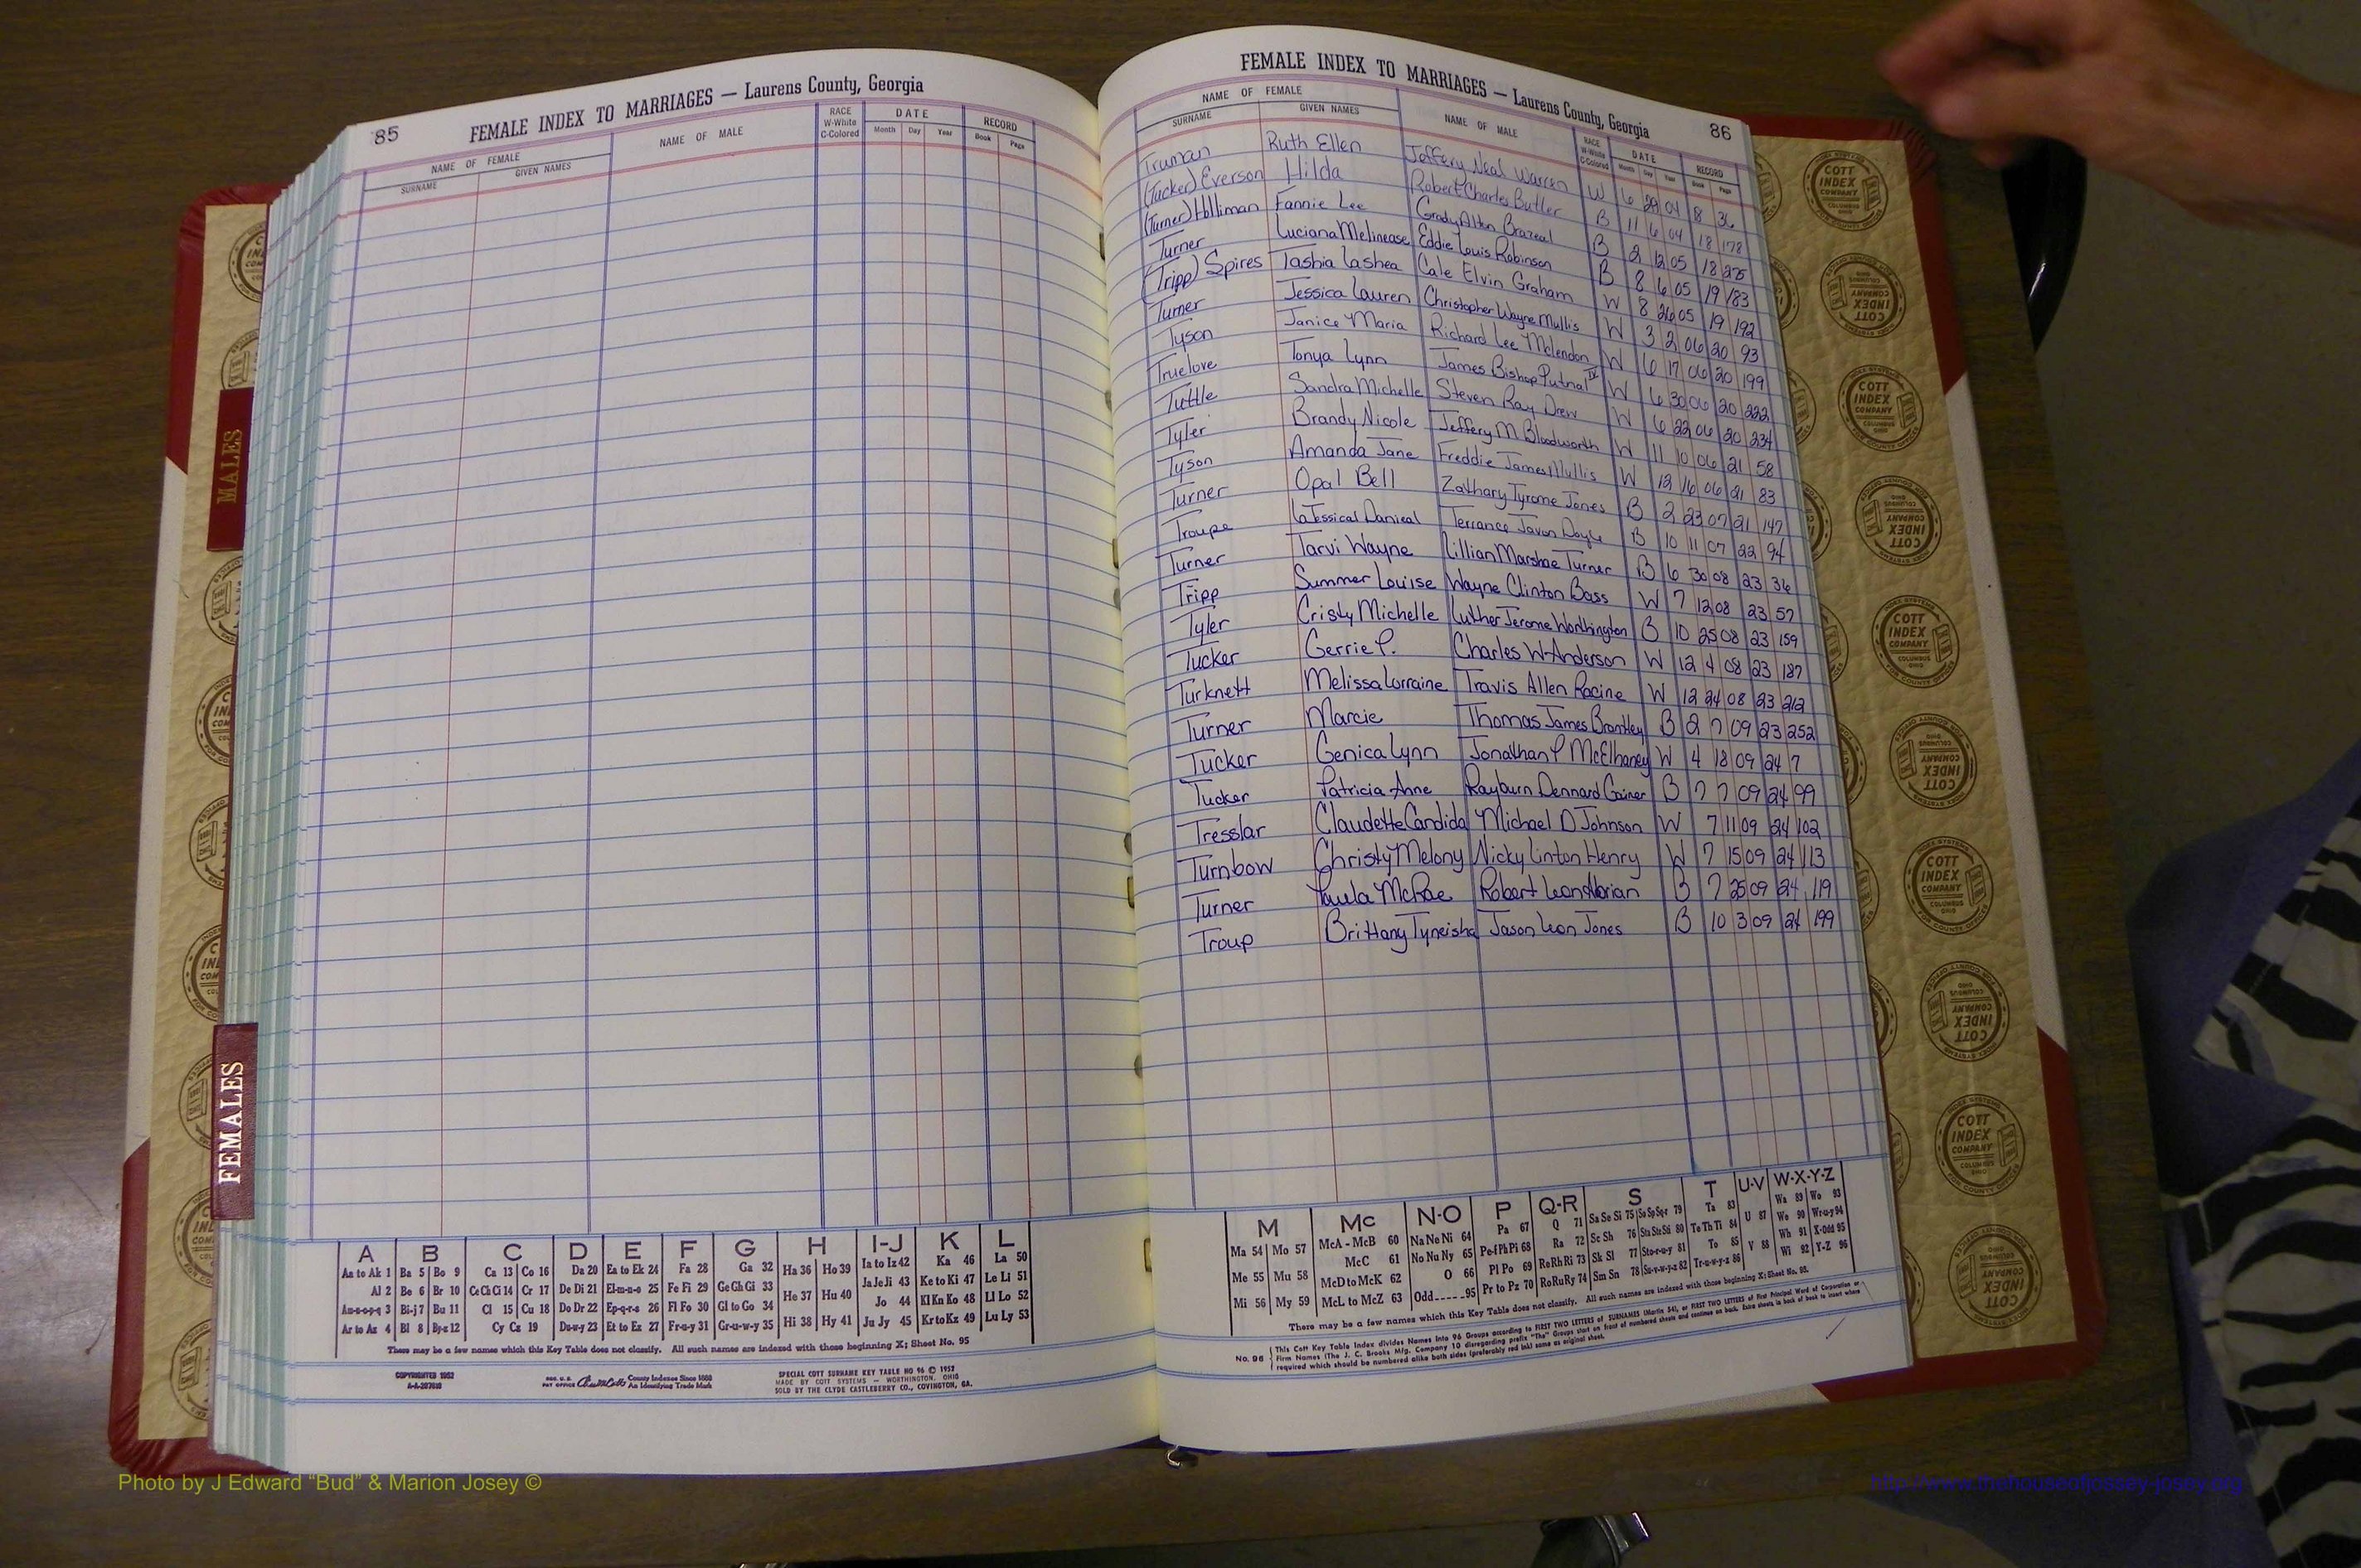 85
FEMALE INDEX TO MARRIAGES — Laurens County, Georgia
NAME OF FEMALE
SURNAME GIVEN NAMES
NAME OF MALE
RACE W-White C-Colored
DATE
Month Day Year
RECORD
Book Page
86
FEMALE INDEX TO MARRIAGES — Laurens County, Georgia
NAME OF FEMALE
SURNAME GIVEN NAMES
NAME OF MALE
RACE W-White C-Colored
DATE
Month Day Year
RECORD
Book Page
Truman Ruth Ellen Jeffery Neal Warren W 6 29 04 18 36
(Tucker) Everson Hilda Robert Charles Butler B 11 6 04 18 178
(Turner) Holliman Fannie Lee Grady Alton Brazeal B 2 12 05 18 275
Turner Luciana Melinease Eddie Louis Robinson B 8 6 05 19 183
(Tripp) Spires Tashia Lashea Cale Elvin Graham W 8 26 05 19 192
Turner Jessica Lauren Christopher Wayne Mullis W 3 2 06 20 93
Tyson Janice Maria Richard Lee McLendon W 6 17 06 20 199
Truelove Tonya Lynn James Bishop Putnal IV W 6 30 06 20 222
Tuttle Sandra Michelle Steven Ray Drew W 6 22 06 20 234
Tyler Brandy Nicole Jeffery M Bloodworth W 11 10 06 21 58
Tyson Amanda Jane Freddie James Mullis W 12 16 06 21 83
Turner Opal Bell Zathary Tyrome Jones B 2 23 07 21 147
Troupe LaJessical Danieal Terrance Javon Doyle B 10 11 07 22 94
Turner Tarvi Wayne Lillian Marshae Turner B 6 30 08 23 36
Tripp Summer Louise Wayne Clinton Bass W 7 12 08 23 57
Tyler Cristy Michelle Luther Jerome Worthington B 10 25 08 23 159
Tucker Gerrie P. Charles W Anderson W 12 4 08 23 187
Turknett Melissa Lorraine Travis Allen Racine W 12 24 08 23 212
Turner Marcie Thomas James Brantley B 2 7 09 23 252
Tucker Genica Lynn Jonathan P McElhaney W 4 18 09 24 7
Tucker Patricia Anne Rayburn Dennard Gainer B 7 7 09 24 99
Tresslar Claudette Candida Michael D Johnson W 7 11 09 24 102
Turnbow Christy Melony Nicky Linton Henry W 7 15 09 24 113
Turner Paula McRae Robert Leon B 7 25 09 24 119
Troup Brittany Tyneisha Jason Leon Jones B 10 3 09 24 199
MALES
FEMALES
A B C D E F G H I-J K L
Aa to Ak 1 Ba 5 Bo 9 Ca 13 Co 16 Da 20 Ea to Ek 24 Fa 28 Ga 32 Ha 36 Ho 39 Ia to Iz 42 Ka 46 La 50
Al 2 Be 6 Br 10 Ce Ch Ci 14 Cr 17 De Di 21 El-m-n-o 25 Fe Fi 29 Ge Gh Gi 33 He 37 Hu 40 Ja Je Ji 43 Ke to Ki 47 Le Li 51
Am-n-o-p-q 3 Bi-j 7 Bu 11 Cl 15 Cu 18 Do Dr 22 Ep-q-r-s 26 Fl Fo 30 Gl to Go 34 Jo 44 Kl Kn Ko 48 Ll Lo 52
Ar to Az 4 Bl 8 By-z 12 Cy Cz 19 Du-w-y 23 Et to Ez 27 Fr-u-y 31 Gr-u-w-y 35 Hi 38 Hy 41 Ju Jy 45 Kr to Kz 49 Lu Ly 53
There may be a few names which this Key Table does not classify. All such names are indexed with those beginning X; Sheet No. 95
COPYRIGHTED 1952
REG. U.S. PAT OFFICE County Indexes Since 1888 An Identifying Trade Mark
SPECIAL COTT SURNAME KEY TABLE NO 96 © 1952
MADE BY COTT SYSTEMS — WORTHINGTON, OHIO
SOLD BY THE CLYDE CASTLEBERRY CO., COVINGTON, GA.
M Mc N-O P Q-R S T U-V W-X-Y-Z
Ma 54 Mo 57 McA - McB 60 Na Ne Ni 64 Pa 67 Q 71 Sa Se Si 75 So Sp Sq-r 79 Ta 83 U 87 Wa 89 Wo 93
Me 55 Mu 58 McC 61 No Nu Ny 65 Pe-f Ph Pi 68 Ra 72 Sc Sh 76 Sta Ste Sti 80 Te Th Ti 84 V 88 We 90 Wr-u-y 94
McD to McK 62 O 66 Pl Po 69 Re Rh Ri 73 Sk Sl 77 Sto-r-u-y 81 To 85 Wh 91 X-Odd 95
Mi 56 My 59 McL to McZ 63 Odd 95 Pr to Pz 70 Ro Ru Ry 74 Sm Sn 78 Su-v-w-y-z 82 Tr-u-w-y-z 86 Wi 92 Y-Z 96
There may be a few names which this Key Table does not classify. All such names are indexed with those beginning X; Sheet No. 95.
No. 96 This Cott Key Table Index divides Names into 96 Groups according to FIRST TWO LETTERS of SURNAMES (Martin 54), or FIRST TWO LETTERS of First Principal Word of Corporation or
Firm Names (The J. C. Brooks Mfg. Company 10 disregarding prefix "The" Groups start on front of numbered sheets and continue on back. Extra sheets in back of book to insert where
required which should be numbered alike both sides (preferably red ink) same as original sheet.
COTT INDEX COMPANY COLUMBUS OHIO
INDEX SYSTEMS
FOR COUNTY OFFICES
Photo by J Edward “Bud” & Marion Josey ©
http://www.thehouseofjossey-josey.org